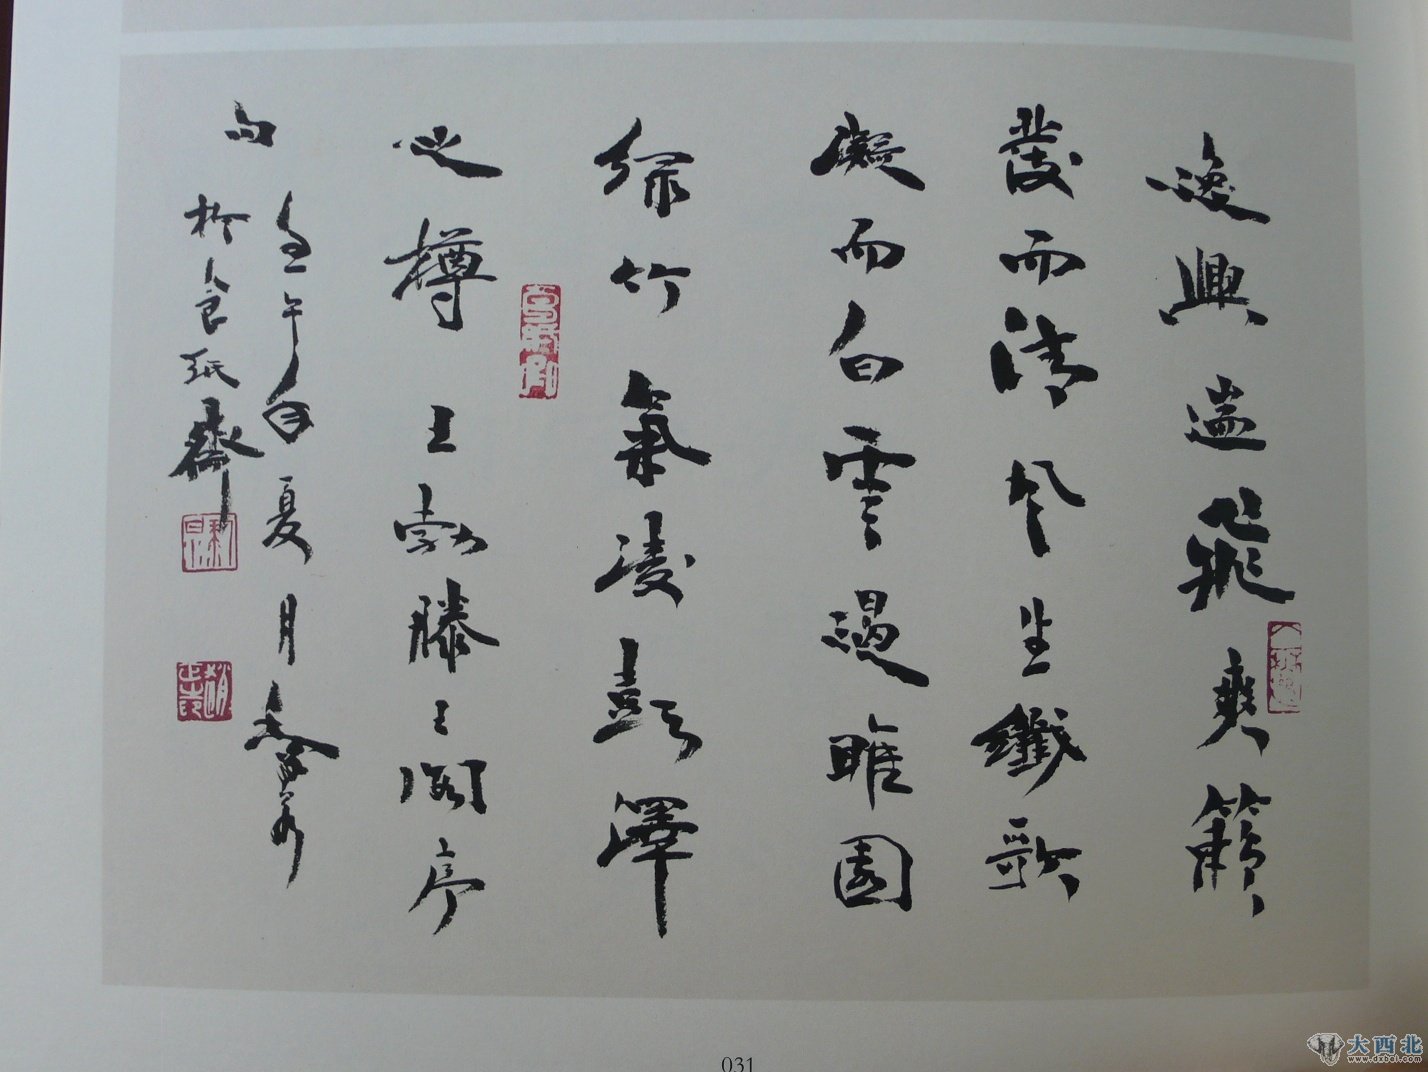 逸興遄飛爽籟
發而清風生纖歌
凝而白雲遏睢園
綠竹氣凌彭澤
之樽 王勃滕王閣序
句
壬午年夏月
於食紙齋
031
大西北
www.dxbei.com